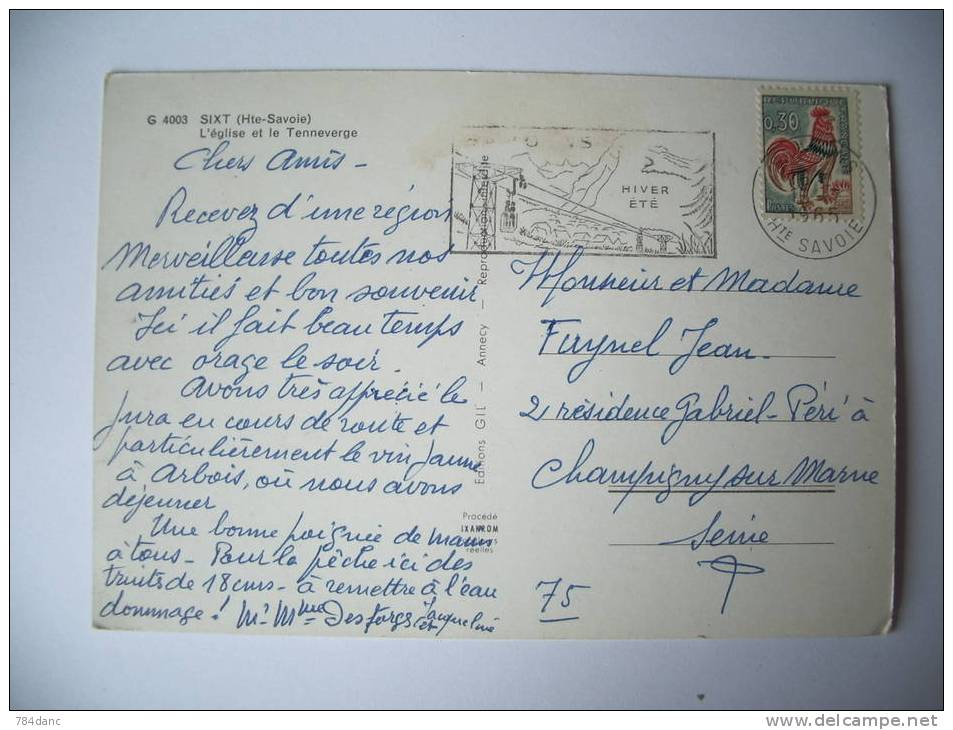 G 4003 SIXT (Hte-Savoie)
L'église et le Tenneverge
Chers Amis -
Recevez d'une région
Merveilleuse toutes nos
amitiés et bon souvenir
Ici il fait beau temps
avec orage le soir.
Avons très apprécié le
Jura en cours de route et
particulièrement le vin jaune
à Arbois, où nous avons
déjeuner
Une bonne poignée de mains
à tous - Pour la pêche ici des
truites de 18 cms - à remettre à l'eau
dommage! Mr Mme Desforges et Jacqueline
Editions GIL - Annecy - Reproduction interdite
Procédé
IXAKROM
réelles
HIVER
ÉTÉ
0,30
POSTES
65
Hte SAVOIE
Monsieur et Madame
Jean
2 résidence Gabriel-Péri à
Champigny sur Marne
Seine
75
784danc
delcampe.net